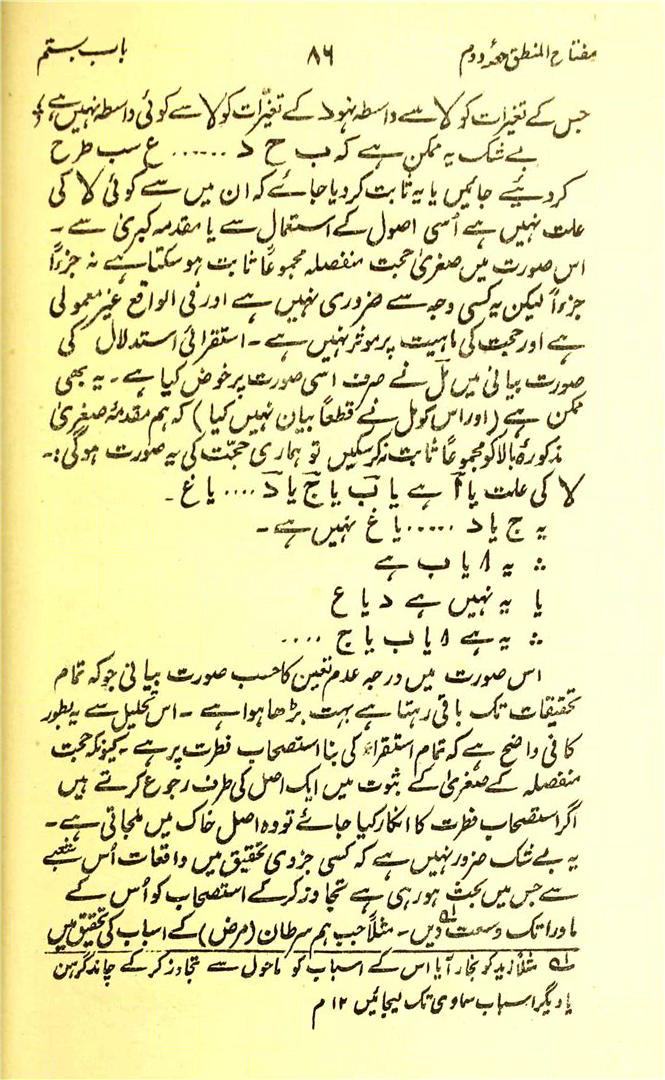 مفتاح المنطق حصۂ دوم ۸۶ باب بستم
جس کے تغیرات کو لا سے واسطہ نہو د کے تغیّرات کو لا سے کوئی واسطہ نہیں ہے
بے شک یہ ممکن ہے کہ ب ج د ...... غ سب طرح
کر دئیے جائیں یا یہ ثابت کر دیا جائے کہ ان میں سے کوئی لا کی
علت نہیں ہے اُسی اصول کے استعمال سے یا مقدمہ کبریٰ سے ۔
اس صورت میں صغریٰ حجت منفصلہ مجموعًا ثابت ہو سکتا ہے نہ جزءًا
جزءًا لیکن یہ کسی وجہ سے ضروری نہیں ہے اور فی الواقع غیر معمولی
ہے اور حجت کی ماہیت پر موثر نہیں ہے ۔ استقرائی استدلال کی
صورت بیانی میں مل نے صرف اسی صورت پر خوض کیا ہے ۔ یہ بھی
ممکن ہے (اور اس کو مل نے قطعاً بیان نہیں کیا) کہ ہم مقدمۂ صغریٰ
مذکورۂ بالا کو مجموعاً ثابت نہ کر سکیں تو ہماری حجّت کی یہ صورت ہوگی :۔
لا کی علت یا آ ہے یا ب یا ج یا د .... یا غ ۔
یہ ج یا د ..... یا غ نہیں ہے ۔
∴ یہ ا یا ب ہے
یا یہ نہیں ہے د یا ع
∴ یہ ہے ا یا ب یا ج ....
اس صورت میں درجہ عدم تعین کا حسب صورت بیانی جو کہ تمام
تحقیقات تک باقی رہتا ہے بہت بڑھا ہوا ہے ۔ اس تحلیل سے یہ بطور
کافی واضح ہے کہ تمام استقراء کی بنا استصحاب فطرت پر ہے کیونکہ حجت
منفصلہ کے صغریٰ کے ثبوت میں ایک اصل کی طرف رجوع کرتے ہیں
اگر استصحاب فطرت کا انکار کیا جائے تو وہ اصل خاک میں ملجاتی ہے ۔
یہ بے شک ضرور نہیں ہے کہ کسی جزوی تحقیق میں واقعات اُس شعبے
سے جس میں بحث ہو رہی ہے تجاوز کر کے استصحاب کو اُس کے
ماورا تک وسعت دیں ۔ مثلاً جب ہم سرطان (مرض) کے اسباب کی تحقیق میں
لہ مثلاً زید کو بخار آیا اس کے اسباب کو ماحول سے تجاوز کر کے چاند گرہن
یا دیگر اسباب سماوی تک لیجائیں ۱۲ م